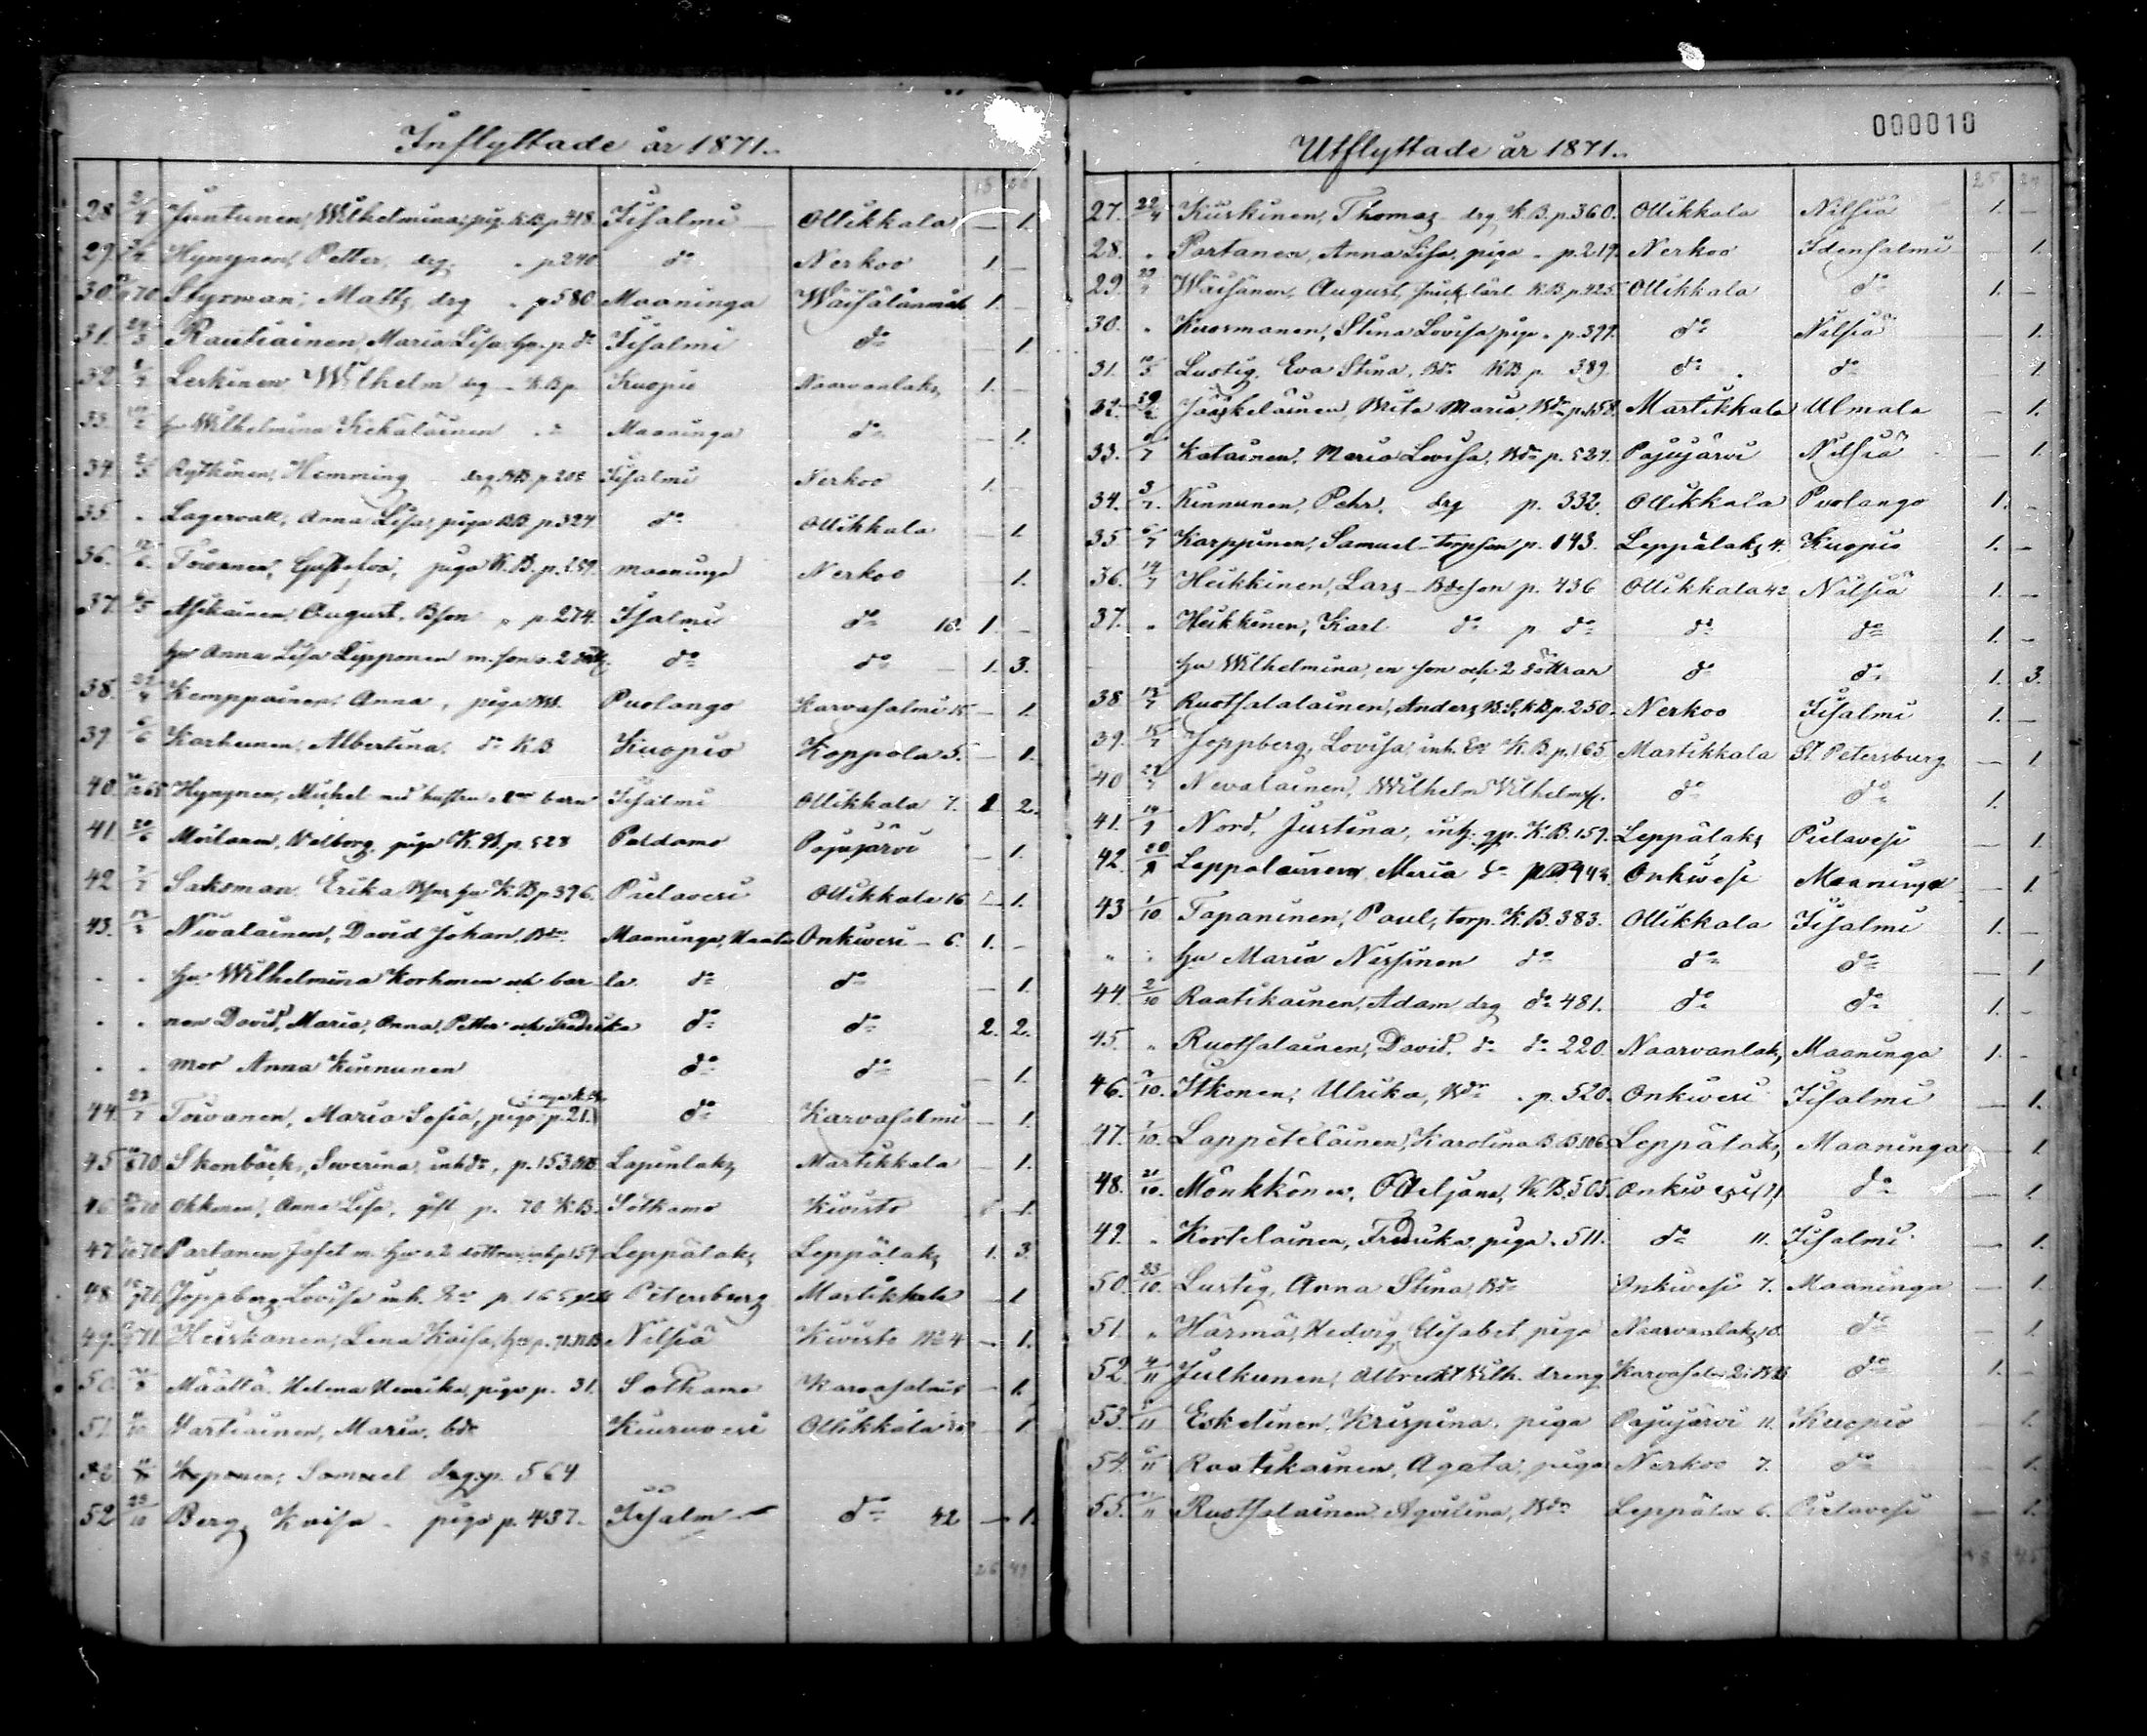 Inflyttade år 1871.
28 Juntunen, Wilhelmina, pig. K.B. p 418. Iisalmi Ollikkala — 1.
29 Hynynen, Petter, drg. " p 240 do Nerkoo 1. —
30 Styrman, Matts, drg " p 580 Maaninga Wäisälänmäki 1. —
31. 24/3 Rautiainen, Maria Lisa, hu. p do Iisalmi do — 1.
32 Leskinen, Wilhelm drg — K.B p Kuopio Naarvanlaks 1. —
33. hu Wilhelmina Kekäläinen Maaninga do — 1.
34 Rytkönen, Hemming drg K.B. p. 202 Iisalmi Nerkoo 1. —
35 " Lagervall, Anna Lisa, piga K.B. p 324 do Ollikkala — 1
36. 12/6. Toivanen, Gustafva, piga K.B. p. 259 Maaninga Nerkoo — 1.
37. Asikainen, August, Bson " p. 274. Iisalmi do 16. 1. —
hu Anna Lisa Lipponen m. son o. 2 döttr. do do — 1. 3.
38. Kemppainen, Anna, piga Puolango Karvasalmi 15 — 1.
39 Karhunen, Albertina, do K.B. Kuopio Koppola 5. — 1.
40. Hynynen, Mickel med hustru o barn Iisalmi Ollikkala 7. 2 2.
41. 20/6 Moilanen, Walborg, piga K.B. p. 528 Paldamo Pajujärvi — 1.
42 Saksman Erika, hu K.B p 396. Pielavesi Ollikkala 16 — 1.
43. Nivalainen, David Johan, Bde Maaninga, Onkivesi — 6. 1. —
" " hu Wilhelmina Korhonen och bar- do do — 1.
" " nen David, Maria, Anna, Petter och Fredrika do do 2. 2.
" " mor Anna Kinnunen do do — 1.
44. 23/7 Toivanen, Maria Sofia, piga p. 21. do Karvasalmi — 1.
45 Skonbäck, Severina, inh. , p. 153. Lapinlaks Martikkala — 1.
46 Okkonen, Anna Lisa, gift p. 70. K.B. Sotkamo Kivisto 1.
47 Partanen Jafet m. hu o. 2 döttrar, p 159. Leppälaks Leppälaks 1. 3.
48 Joppberg, Lovisa inh. p. 165 Petersburg Martikkala — 1
49. Heiskanen, Lena Kaisa, p. 71. Nilsiä Kivisto No 4 — 1.
50. Määttä, Helena Henrika, piga p. 31. Sotkamo Karvasalmi — 1.
51. Hartiainen, Maria, bde Kiuruvesi Ollikkala — 1
52 Koponen, Samuel drg. p. 564
52 23/10 Berg, Kaisa — piga p. 437. Iisalmi do 42 — 1.
26 49
000010
Utflyttade år 1871.
25 24
27. 22/4 Kiiskinen, Thomas drg K.B. p. 360. Ollikkala Nilsiä 1. —
28. " Partanen, Anna Lisa, piga " p. 219. Nerkoo Idensalmi — 1.
29. Wäisänen, August, K.B. p. 425. Ollikkala do 1. —
30. " Kuosmanen, Stina Lovisa piga " p. 397. do Nilsiä — 1.
31. 10/5 Lustig, Eva Stina, Bdr K.B p. 389. do do 1.
32. Jääskeläinen, Brita Maria, Bdr p. 158. Martikkala Ulmala — 1.
33. Katainen, Maria Lovisa, Bdr p. 527. Pajujärvi Nilsiä — 1.
34. 3/7. Kinnunen, Pehr, drg p. 332. Ollikkala Puolango 1. —
35 6/7 Karppinen, Samuel torpson p. 143. Leppälaks 4. Kuopio 1. —
36. 14/7 Heikkinen, Lars — Bdeson p. 436 Ollikkala 42 Nilsiä 1. —
37. " Heikkinen, Karl do p do do do 1. —
hu Wilhelmina, en son och 2 döttrar do do 1. 3.
38 Ruotsalalainen, Anders B.S. K.B p. 250. Nerkoo Iisalmi 1. —
39. Joppberg, Lovisa, inh. K.B. p. 165 Martikkala St Petersburg — 1
40 Nevalainen, Wilhelm Wilhelmss. do do 1.
41. Nord, Justina, inh. K.B. 159. Leppälaks Pielavesi — 1
42. Leppalainen Maria do Onkivesi Maaninga — 1
43 1/10 Tapaninen, Paul, torp. K.B. 383. Ollikkala Iisalmi 1. —
" " hu Maria Nissinen do do do — 1
44. 2/10 Raatikainen, Adam drg do 481. do do 1. —
45. " Ruotsalainen, David, do do 220. Naarvanlaks Maaninga 1. —
46. Itkonen, Ulrika, Bdr " p. 520. Onkivesi Iisalmi — 1.
47. Lappeteläinen, Karolina B. B. 106 Leppälaks Maaninga — 1.
48. 21/10. Mönkkönen, Ottiljana, K.B. 505. Onkivesi do — 1
49. " Kortelainen, Fredrika, piga. 511. do 11. Iisalmi — 1.
50. 23/10 Lustig, Anna Stina, Bdr Onkivesi 7. Maaninga — 1.
51. " Härmä, Hedvig Elisabet, piga Naarvanlaks do — 1.
52. 4/11 Julkunen, Albrekt Wilh. dreng Karvasalmi do 1. —
53. Eskelinen, Krispina, piga Pajujärvi 11. Kuopio — 1.
54. Raatikainen, Agata, piga Nerkoo 7. do 1.
55. Ruotsalainen Aqvilina, Bdr Leppälax 6. Pielavesi — 1.